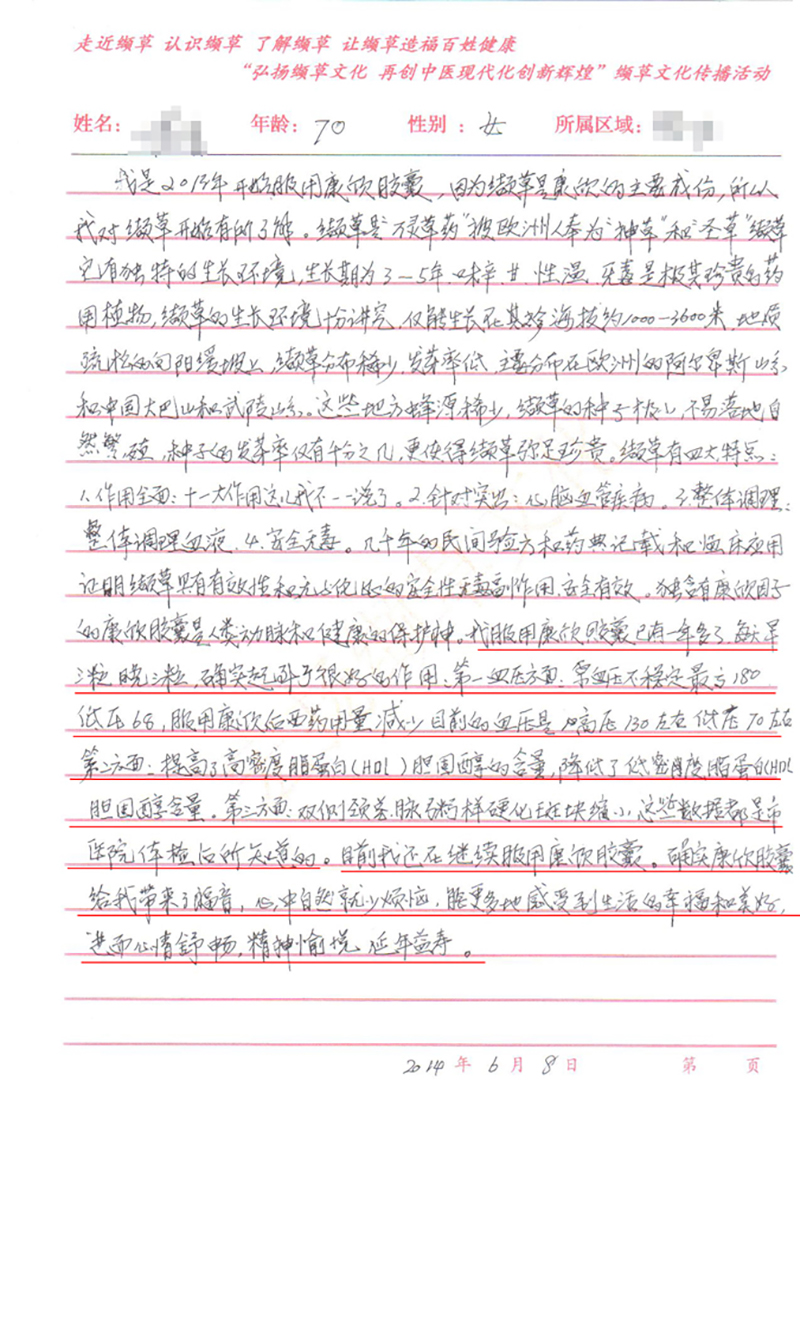 走近缬草 认识缬草 了解缬草 让缬草造福百姓健康
“弘扬缬草文化 再创中医现代化创新辉煌”缬草文化传播活动
姓名： 年龄：70 性别：女 所属区域：
我是2013年开始服用康欣胶囊，因为缬草是康欣的主要成份，所以
我对缬草开始有所了解。缬草是“万灵草药”被欧洲人奉为“神草”和“圣草”缬草
它有独特的生长环境，生长期为3-5年.味辛.甘.性温.无毒是极其珍贵的药
用植物，缬草的生长环境十份讲究，仅能生长在其海拔约1000-3600米，地质
疏松的向阳缓坡上，缬草分布稀少，发芽率低，主要分布在欧洲的阿尔卑斯山系
和中国大巴山和武陵山系。这些地方蜂源稀少，缬草的种子极小，不易落地自
然繁殖，种子的发芽率仅有千分之几，更使得缬草弥足珍贵。缬草有四大特点：
1.作用全面：十一大作用这儿我不一一说了。2.针对突出：心脑血管疾病。3.整体调理：
整体调理血液.4.安全无毒。几十年的民间验方和药典记载和临床应用
证明缬草具有有效性和无与伦比的安全性无毒副作用.安全有效。独含有康欣因子
的康欣胶囊是人类动脉和健康的保护神。我服用康欣胶囊已有一年多了.每天早
三粒晚三粒，确实起到了很好的作用：第一血压方面：常血压不稳定最高180
低压68，服用康欣后西药用量减少目前的血压是高压130左右低压70左右
第二方面：提高了高密度脂蛋白(HDL)胆固醇的含量，降低了低密度脂蛋白(HDL
胆固醇含量。第三方面：双侧颈动脉粥样硬化斑块缩小，这些数据都是市
医院体检后所知道的。目前我还在继续服用康欣胶囊。确实康欣胶囊
给我带来了福音，心中自然就少烦恼，能更多地感受到生活的幸福和美好，
进而心情舒畅，精神愉悦、延年益寿。
2014年6月8日 第 页